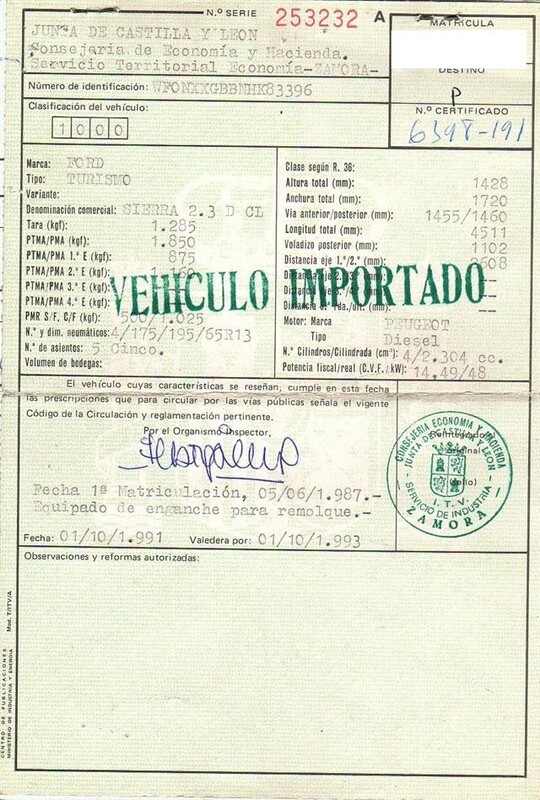 N.º SERIE 253232 A
JUNTA DE CASTILLA Y LEON
Consejeria de Economía y Hacienda.
Servicio Territorial Economía-ZAMORA-
MATRICULA
DESTINO
P
Número de identificación: WFONXXGBBNHK83396
N.º CERTIFICADO
6398-191
Clasificación del vehículo:
1000
Marca: FORD
Tipo: TURISMO
Variante:
Denominación comercial: SIERRA 2.3 D CL
Tara (kgf): 1.285
PTMA/PMA (kgf): 1.850
PTMA/PMA 1.º E (kgf): 875
PTMA/PMA 2.º E (kgf):
PTMA/PMA 3.º E (kgf):
PTMA/PMA 4.º E (kgf):
PMR S/F, C/F (kgf): /1.025
N.º y dim. neumáticos: 4/175/195/65R13
N.º de asientos: 5 Cinco.
Volumen de bodegas:
Clase según R. 36:
Altura total (mm): 1428
Anchura total (mm): 1720
Vía anterior/posterior (mm): 1455/1460
Longitud total (mm): 4511
Voladizo posterior (mm): 1102
Distancia eje 1.º/2.º (mm): 2608
VEHICULO IMPORTADO
Motor: Marca PEUGEOT
Tipo Diesel
N.º Cilindros/Cilindrada (cm³): 4/2.304 cc.
Potencia fiscal/real (C.V.F./kW): 14,49/48
El vehículo cuyas características se reseñan, cumple en esta fecha
las prescripciones que para circular por las vías públicas señala el vigente
Código de la Circulación y reglamentación pertinente.
Por el Organismo Inspector,
CONSEJERIA ECONOMIA Y HACIENDA
JUNTA DE CASTILLA Y LEON
I. T. V.
SERVICIO DE INDUSTRIA
ZAMORA
Fecha 1ª Matriculación, 05/06/1.987.-
Equipado de enganche para remolque.-
Fecha: 01/10/1.991 Valedera por: 01/10/1.993
Observaciones y reformas autorizadas:
CENTRO DE PUBLICACIONES
MINISTERIO DE INDUSTRIA Y ENERGIA
Mod. T/ITV/A